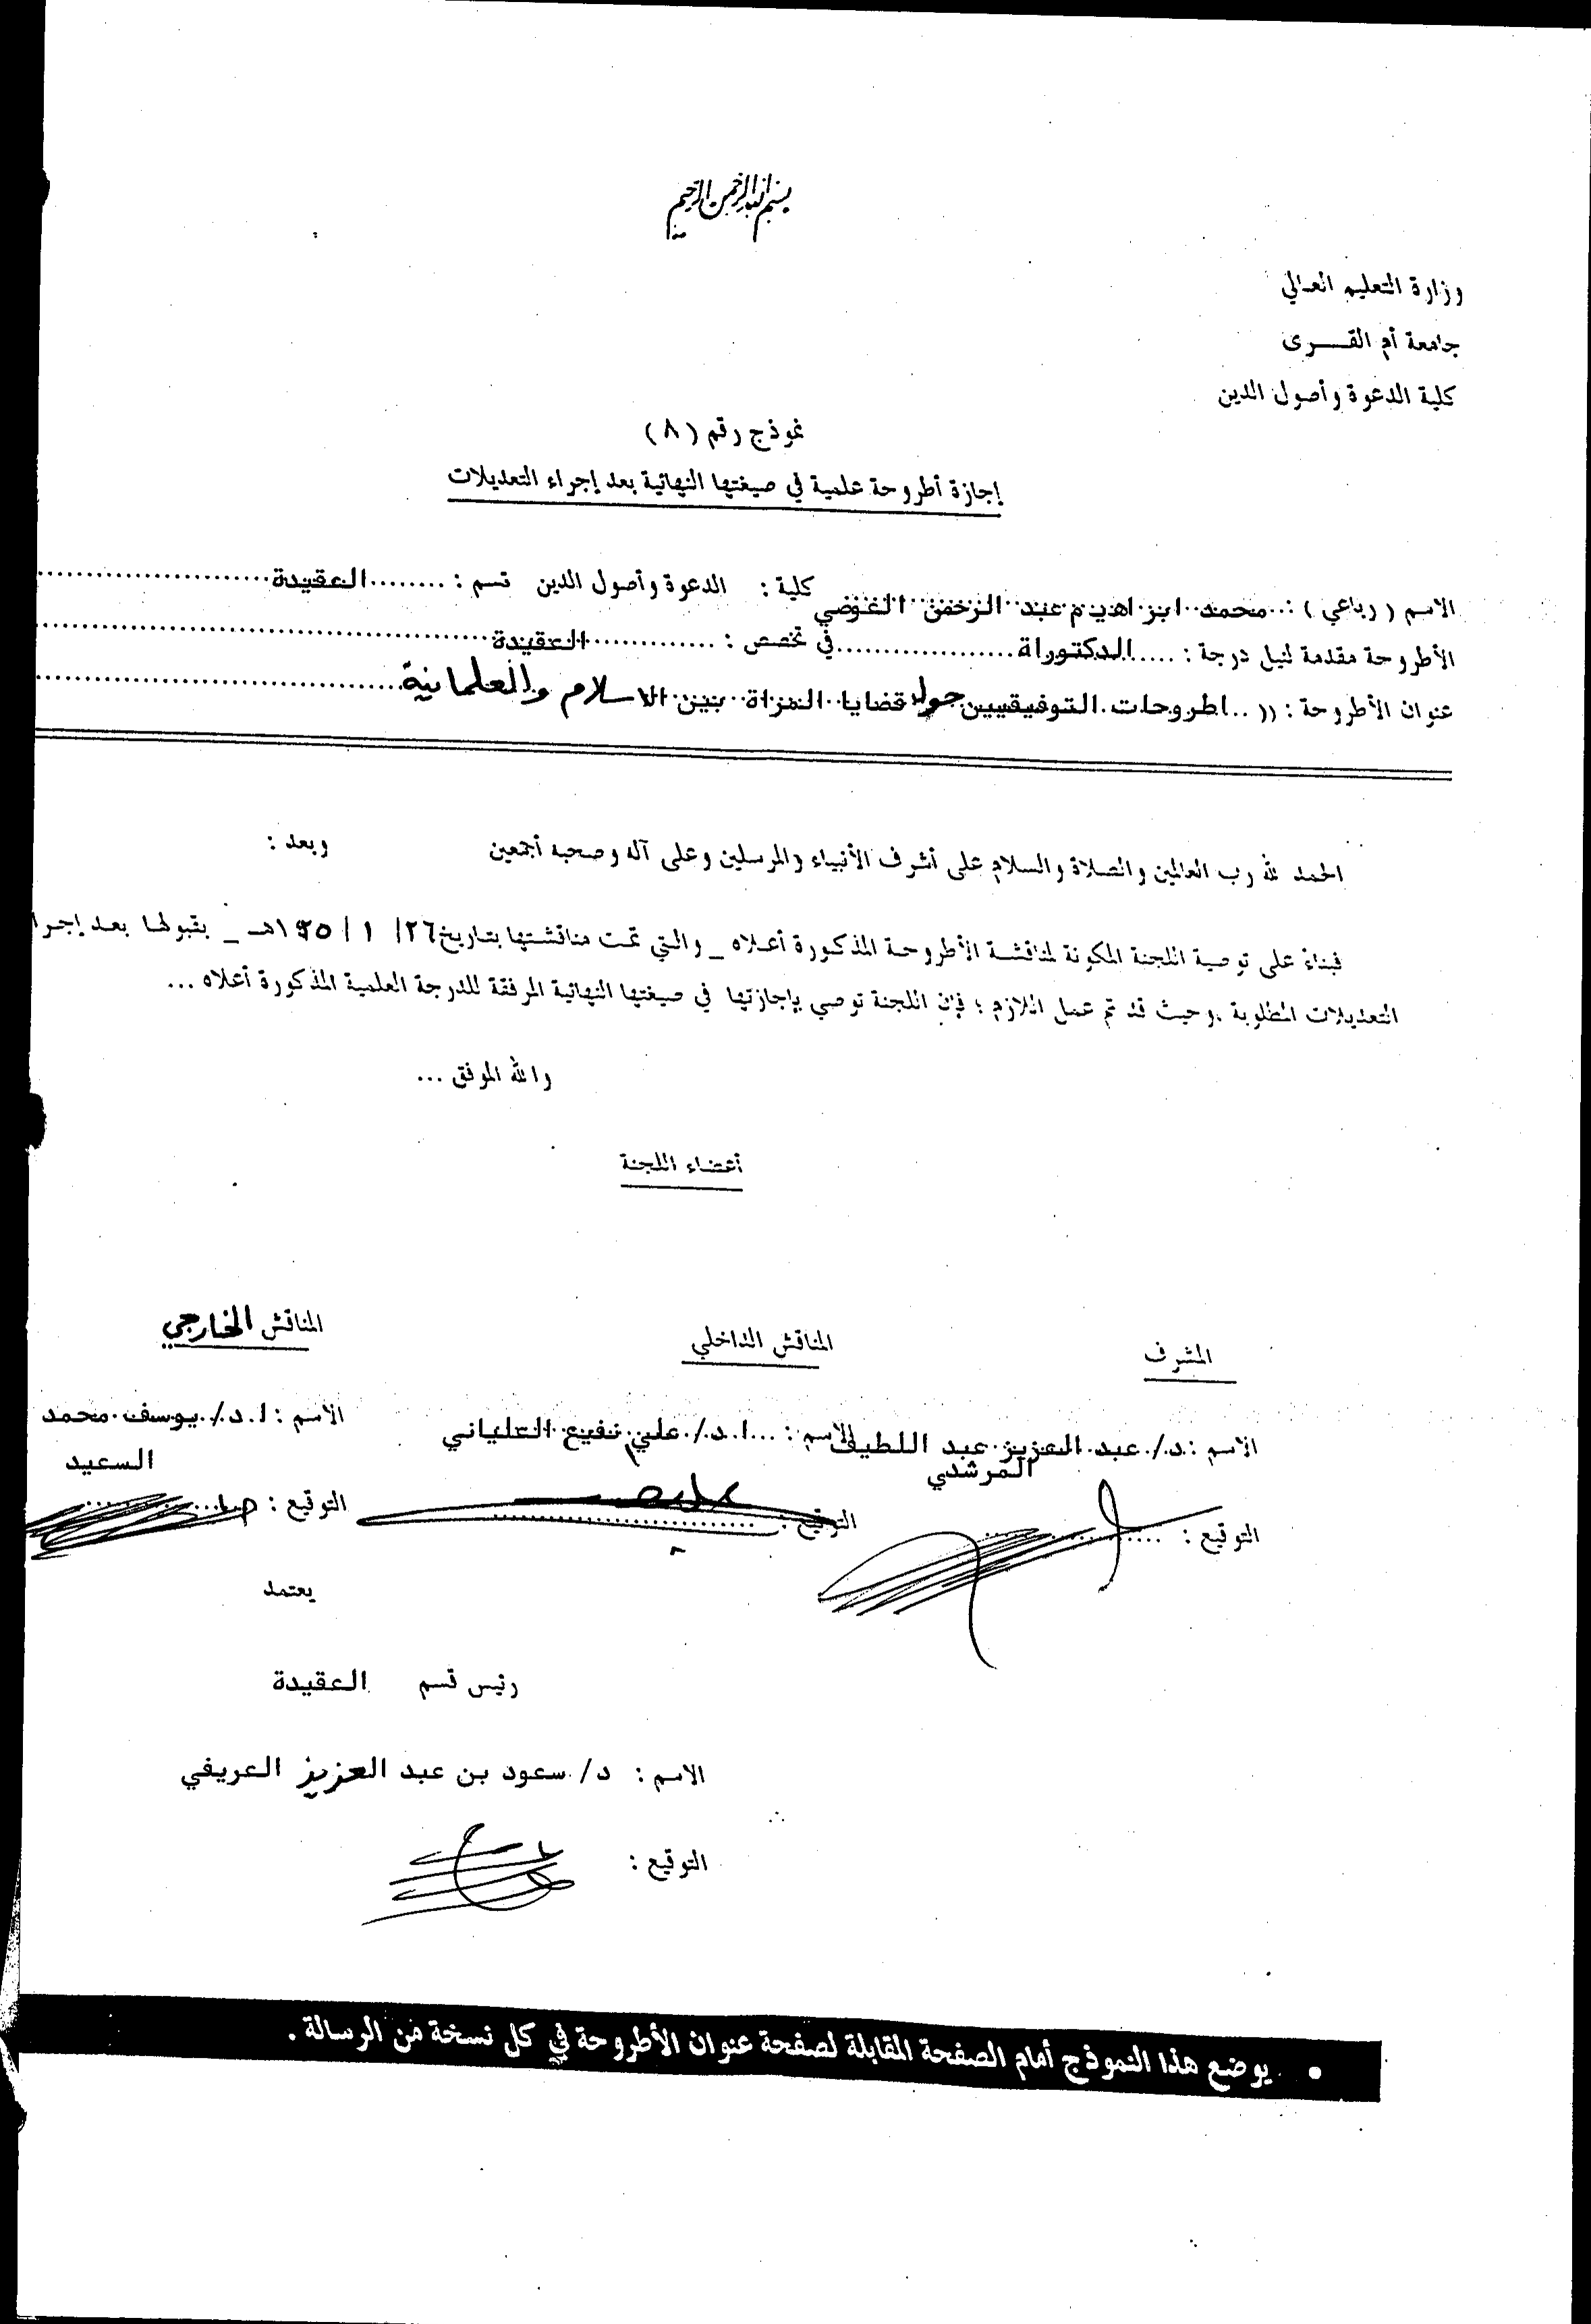 بسم الله الرحمن الرحيم
وزارة التعليم العالي
جامعة أم القــــرى
كلية الدعوة وأصول الدين
نموذج رقم ( ٨ )
إجازة أطروحة علمية في صيغتها النهائية بعد إجراء التعديلات
الاسم ( رباعي ) : محمد ابراهيم عبد الرحمن العوضي كلية : الدعوة وأصول الدين قسم : ........العقيدة........
الأطروحة مقدمة لنيل درجة : .....الدكتوراة..................في تخصص : .............العقيدة........
عنوان الأطروحة : (( ..اطروحات التوفيقيين حول قضايا المرأة بين الاسلام والعلمانية........
الحمد لله رب العالمين والصلاة والسلام على أشرف الأنبياء والمرسلين وعلى آله وصحبه أجمعين وبعد :
فبناءً على توصية اللجنة المكونة لمناقشة الأطروحة المذكورة أعلاه _ والتي تمت مناقشتها بتاريخ ٢٦/ ١ / هـ _ بقبولها بعد إجرا
التعديلات المطلوبة .وحيث قد تم عمل اللازم ؛ فإن اللجنة توصي بإجازتها في صيغتها النهائية المرفقة للدرجة العلمية المذكورة أعلاه ...
والله الموفق ...
أعضاء اللجنة
المشرف المناقش الداخلي المناقش الخارجي
الاسم : د./ عبد العزيز عبد اللطيف المرشدي
الاسم : ...ا.د./ علي نفيع العلياني
الاسم : ا.د./ يوسف محمد السعيد
التوقيع : التوقيع : التوقيع :
يعتمد
رئيس قسم العقيدة
الاسم : د/ سعود بن عبد العزيز العريفي
التوقيع :
• يوضع هذا النموذج أمام الصفحة المقابلة لصفحة عنوان الأطروحة في كل نسخة من الرسالة .